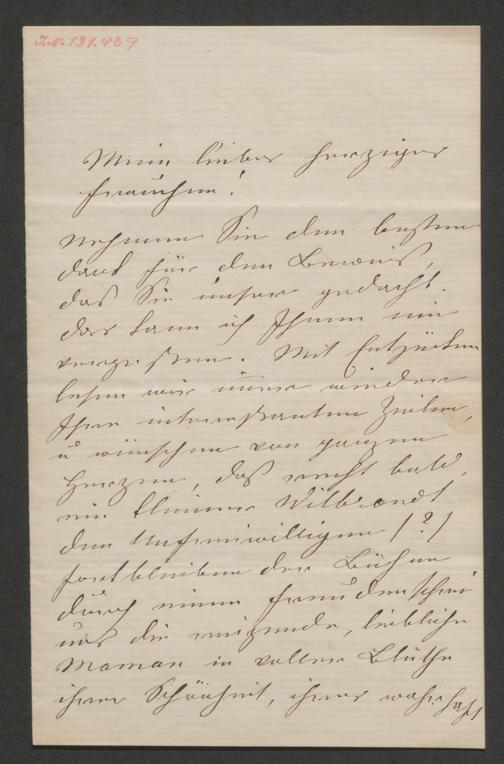 I.N. 131.439
Mein lieber herziger
Frauchen!
Nehmen Sie den besten
Dank für den Beweis,
daß Sie unser gedacht.
das kann ich Ihnen nie
vergessen. Mit Entzücken
lesen wir immer wieder
Ihre interessanten Zeilen,
u wünschen von ganzem
Herzen, daß recht bald,
ein kleiner Wilbrandt
dem Unfreiwilligen (?)
fortbleiben der Bühne
durch einen Freudenschrei
uns die reizende, liebliche
Maman in voller Blüthe
ihrer Schönheit, ihrer wahrhaft